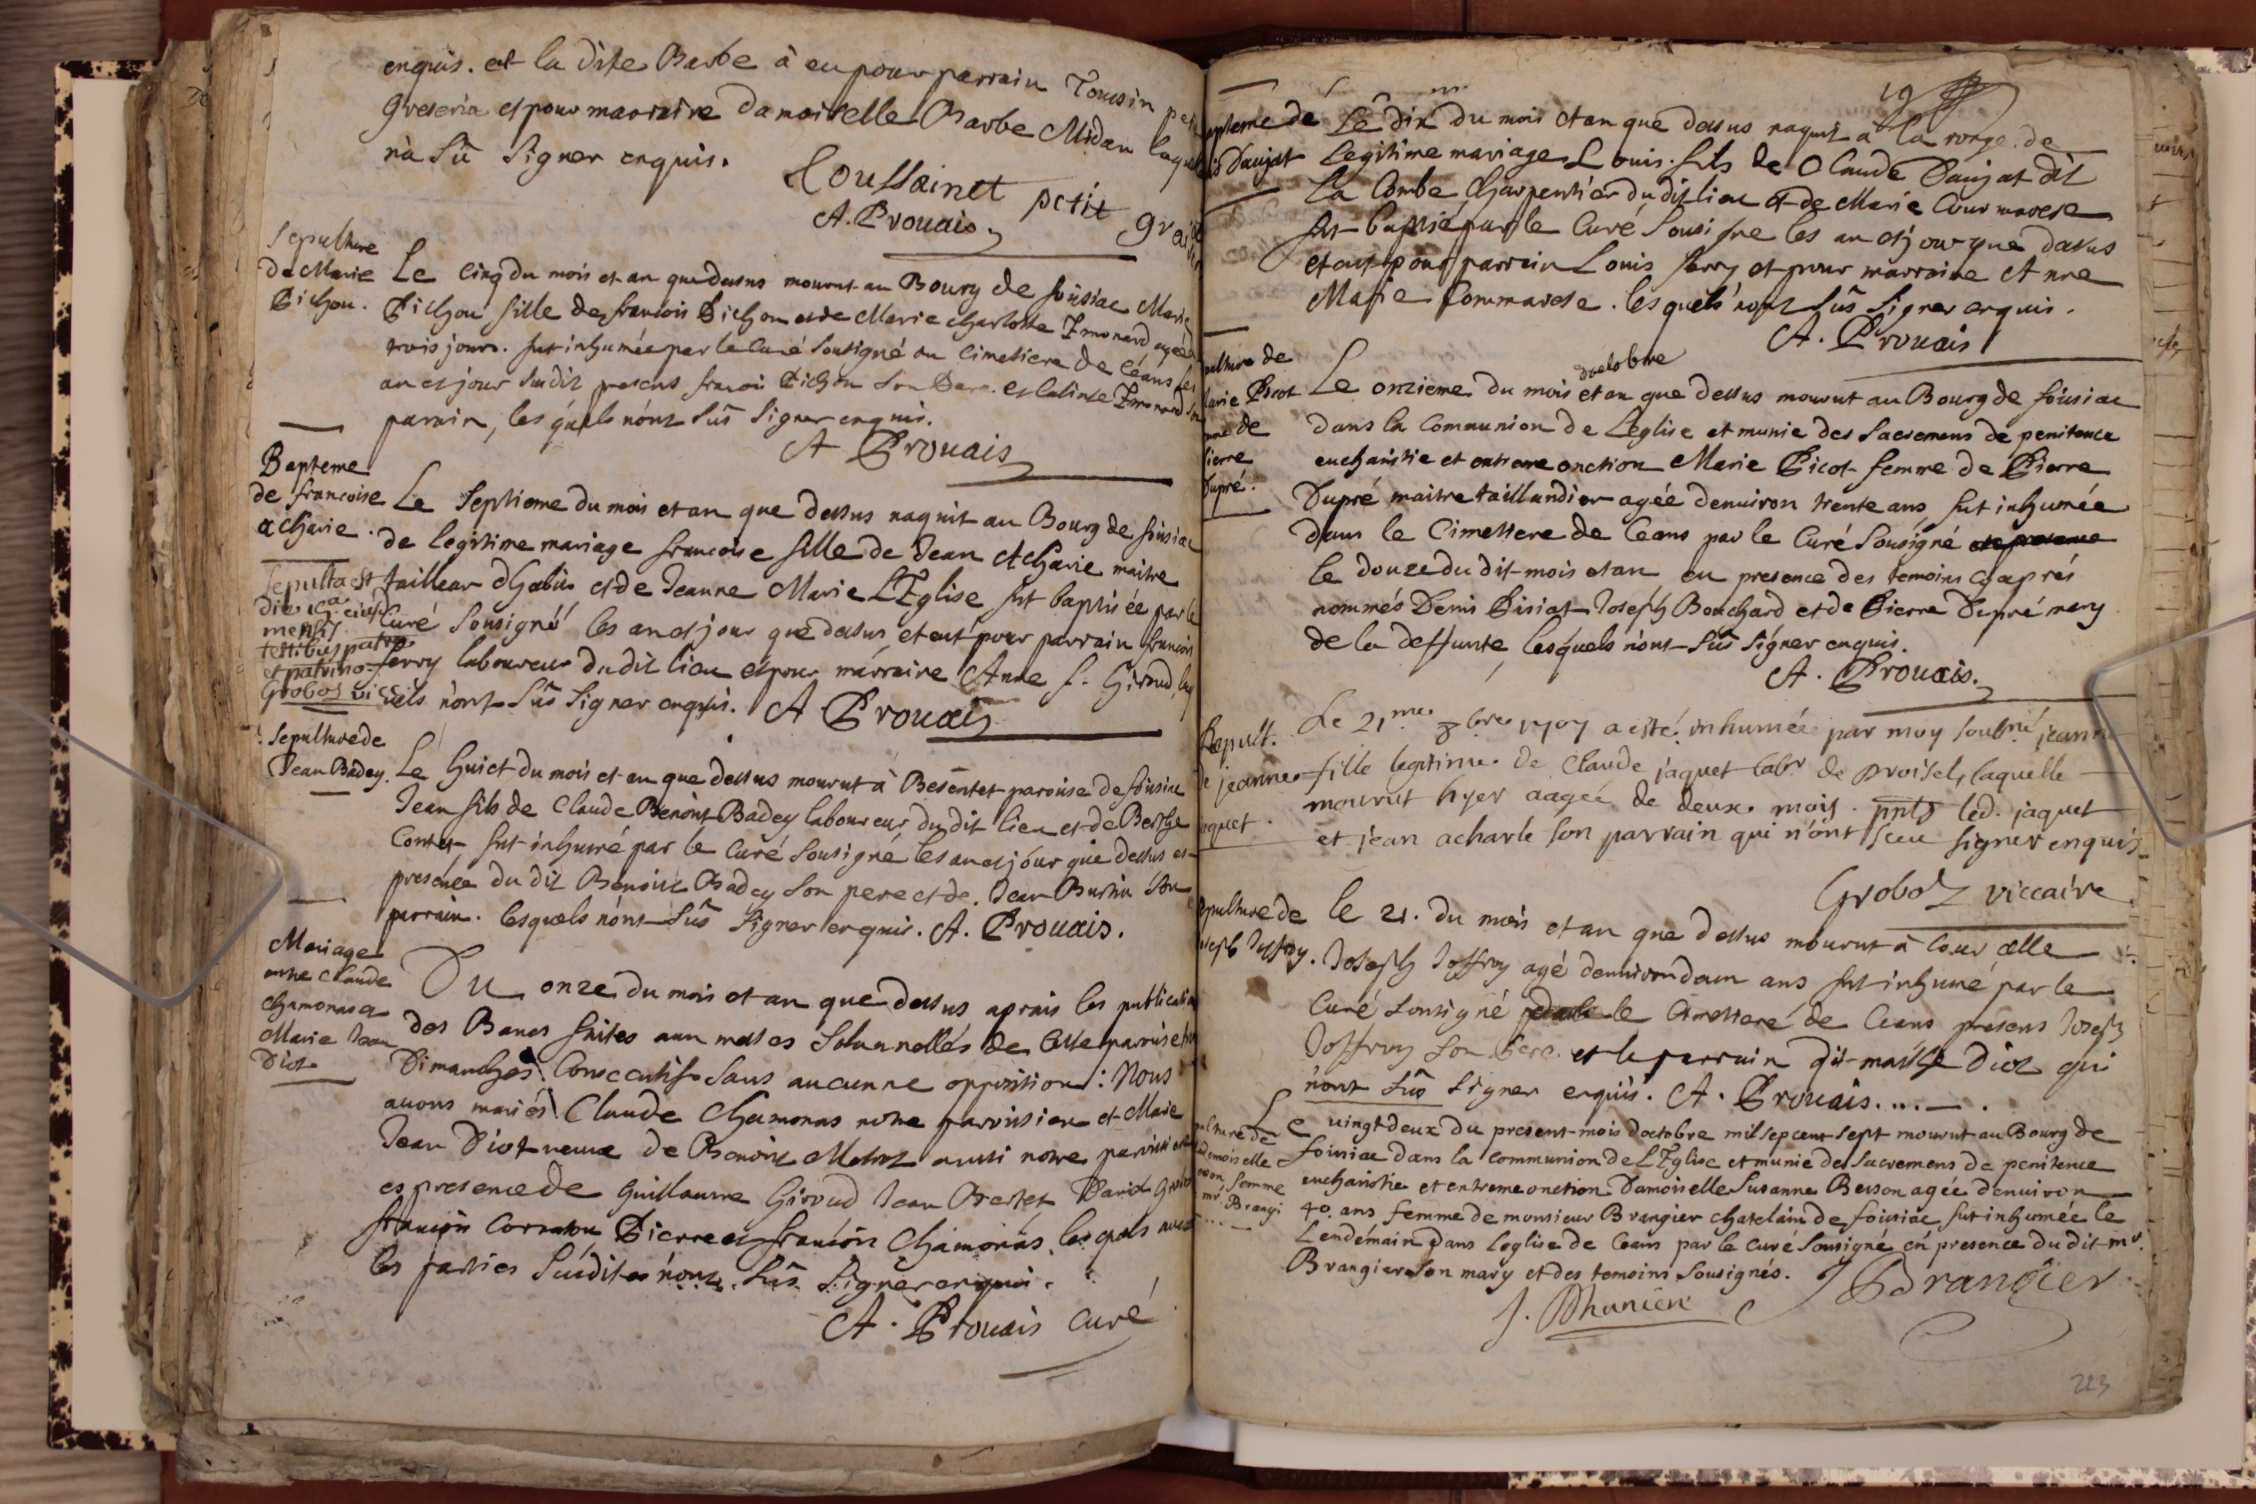 enquis. et la dite Barbe à eu pour parrain Tousin
Greseria et pour marraine damoiselle Barbe Midan
nà sû signer enquis.
Toussainct petit
A. Prouais
Sepulture
de Marie
Pichon.
Le cinq du mois et an que dessus mourut au Bourg de foissiac Marie
Pichon fille de francois Pichon et de Marie charlotte Emonard agée
trois jours. fut inhumée par le Curé sousigné au Cimetiere de Céans les
an et jour susdit presens francois Pichon son Pere et
parain, les quels n'ont sûs signer enquis.
A Prouais
Bapteme
de francoise
acharie.
Le septieme du mois et an que dessus naquit au Bourg de foissiac
de legitime mariage francoise fille de Jean Acharie maitre
tailleur d'habis et de Jeanne Marie L'Eglise fut baptisée par le
Curé sousigné les an et jour que dessus, et eut pour parrain francois
ferry laboureur du dit lieu et pour marraine Anne f. Giroud, les
quels n'ont sûs signer enquis. A Prouais
Sepulta est
die
mensis
testibus patre
et patrino
Groboz vicc
Sepulture de
Jean Badey.
Le huict du mois et an que dessus mourut à Besentet paroisse de foissiac
Jean fils de Claude Benoit Badey laboureur du dit lieu et de
Contet fut inhumé par le Curé sousigné les an et jour que dessus en
presence du dit Benoit Badey son pere et de Jean Burtin son
parrain. lesquels n'ont sûs signer enquis. A. Prouais.
Mariage
entre Claude
chamonas et
Marie Jean
Diot
Du onze du mois et an que dessus aprais les publications
des Bancs faites aux messes solannelles de cette paroisse
Dimanches consecutifs sans aucunne opposition: Nous
auons mariés Claude Chamonas notre paroissien et Marie
Jean Diot veuve de Benoit aussi notre paroissienne
en presence de Guillaume Giroud Jean
francois Pierre et francois Chamonas. lesquels avec
les parties susdites n'ont sûs signer enquis.
A. Prouais curé
19
Bapteme de
Louis Daujat
Le dix du mois et an que dessus naquit à la ronge de
legitime mariage Louis fils de Claude Daujat dit
La Combe Charpentier du dit lieu et de Marie
fut baptisé par le Curé sousigné les an et jour que dessus
et eut pour parrain Louis ferry et pour marraine Anne
Marie Pommarese. lesquels n'ont sûs signer enquis.
A. Prouais
pulture de
Marie Picot
femme de
Pierre
Dupré.
doctobre
Le onzieme du mois et an que dessus mourut au Bourg de foissiac
dans la Communion de L'eglise et munie des sacremens de penitence
eucharistie et extreme onction Marie Picot femme de Pierre
Dupré maitre taillandier agée denuiron trente ans fut inhumée
dans le Cimettere de Ceans par le Curé sousigné
le douze du dit mois et an en presence des temoins cy aprés
nommés Denis Pisiat Joseph Bouchard et de Pierre Dupré mary
de la deffunte, lesquels n'ont sûs signer enquis.
A. Prouais.
Sepult.
de jeanne
jaquet.
Le 21me 8bre 1707 a esté inhumée par moy soubné jeanne
fille legitime de Claude jaquet labr de Proisel, laquelle
mourut hyer aagée de deux mois. pnts led. jaquet
et jean acharle son parrain qui n'ont sceu signer enquis
Groboz viccaire
Sepulture de
Joseph Joffroy.
le 21. du mois et an que dessus mourut à Cour celle
Joseph Joffroy agé denuiron dun ans fut inhumé par le
Curé sousigné dans le Cimettere de Ceans presens Joseph
Joffroy son Pere et le parrain dit Diot qui
n'ont sûs signer enquis. A. Prouais.
pulture de
damoiselle
femme
mr Brangi
Le uingt deux du present mois doctobre mil sept cent sept mourut au Bourg de
foissiac dans la communion de L'Eglise et munie des sacremens de penitence
eucharistie et extreme onction Damoiselle Susanne Besson agée denuiron
40 ans femme de monsieur Brangier chatelain de foissiac fut inhumée le
Lendemain dans l'eglise de Ceans par le curé sousigné en presence du dit mr.
Brangier son mary et des temoins sousignés. Brangier
J. Dhunieré
223